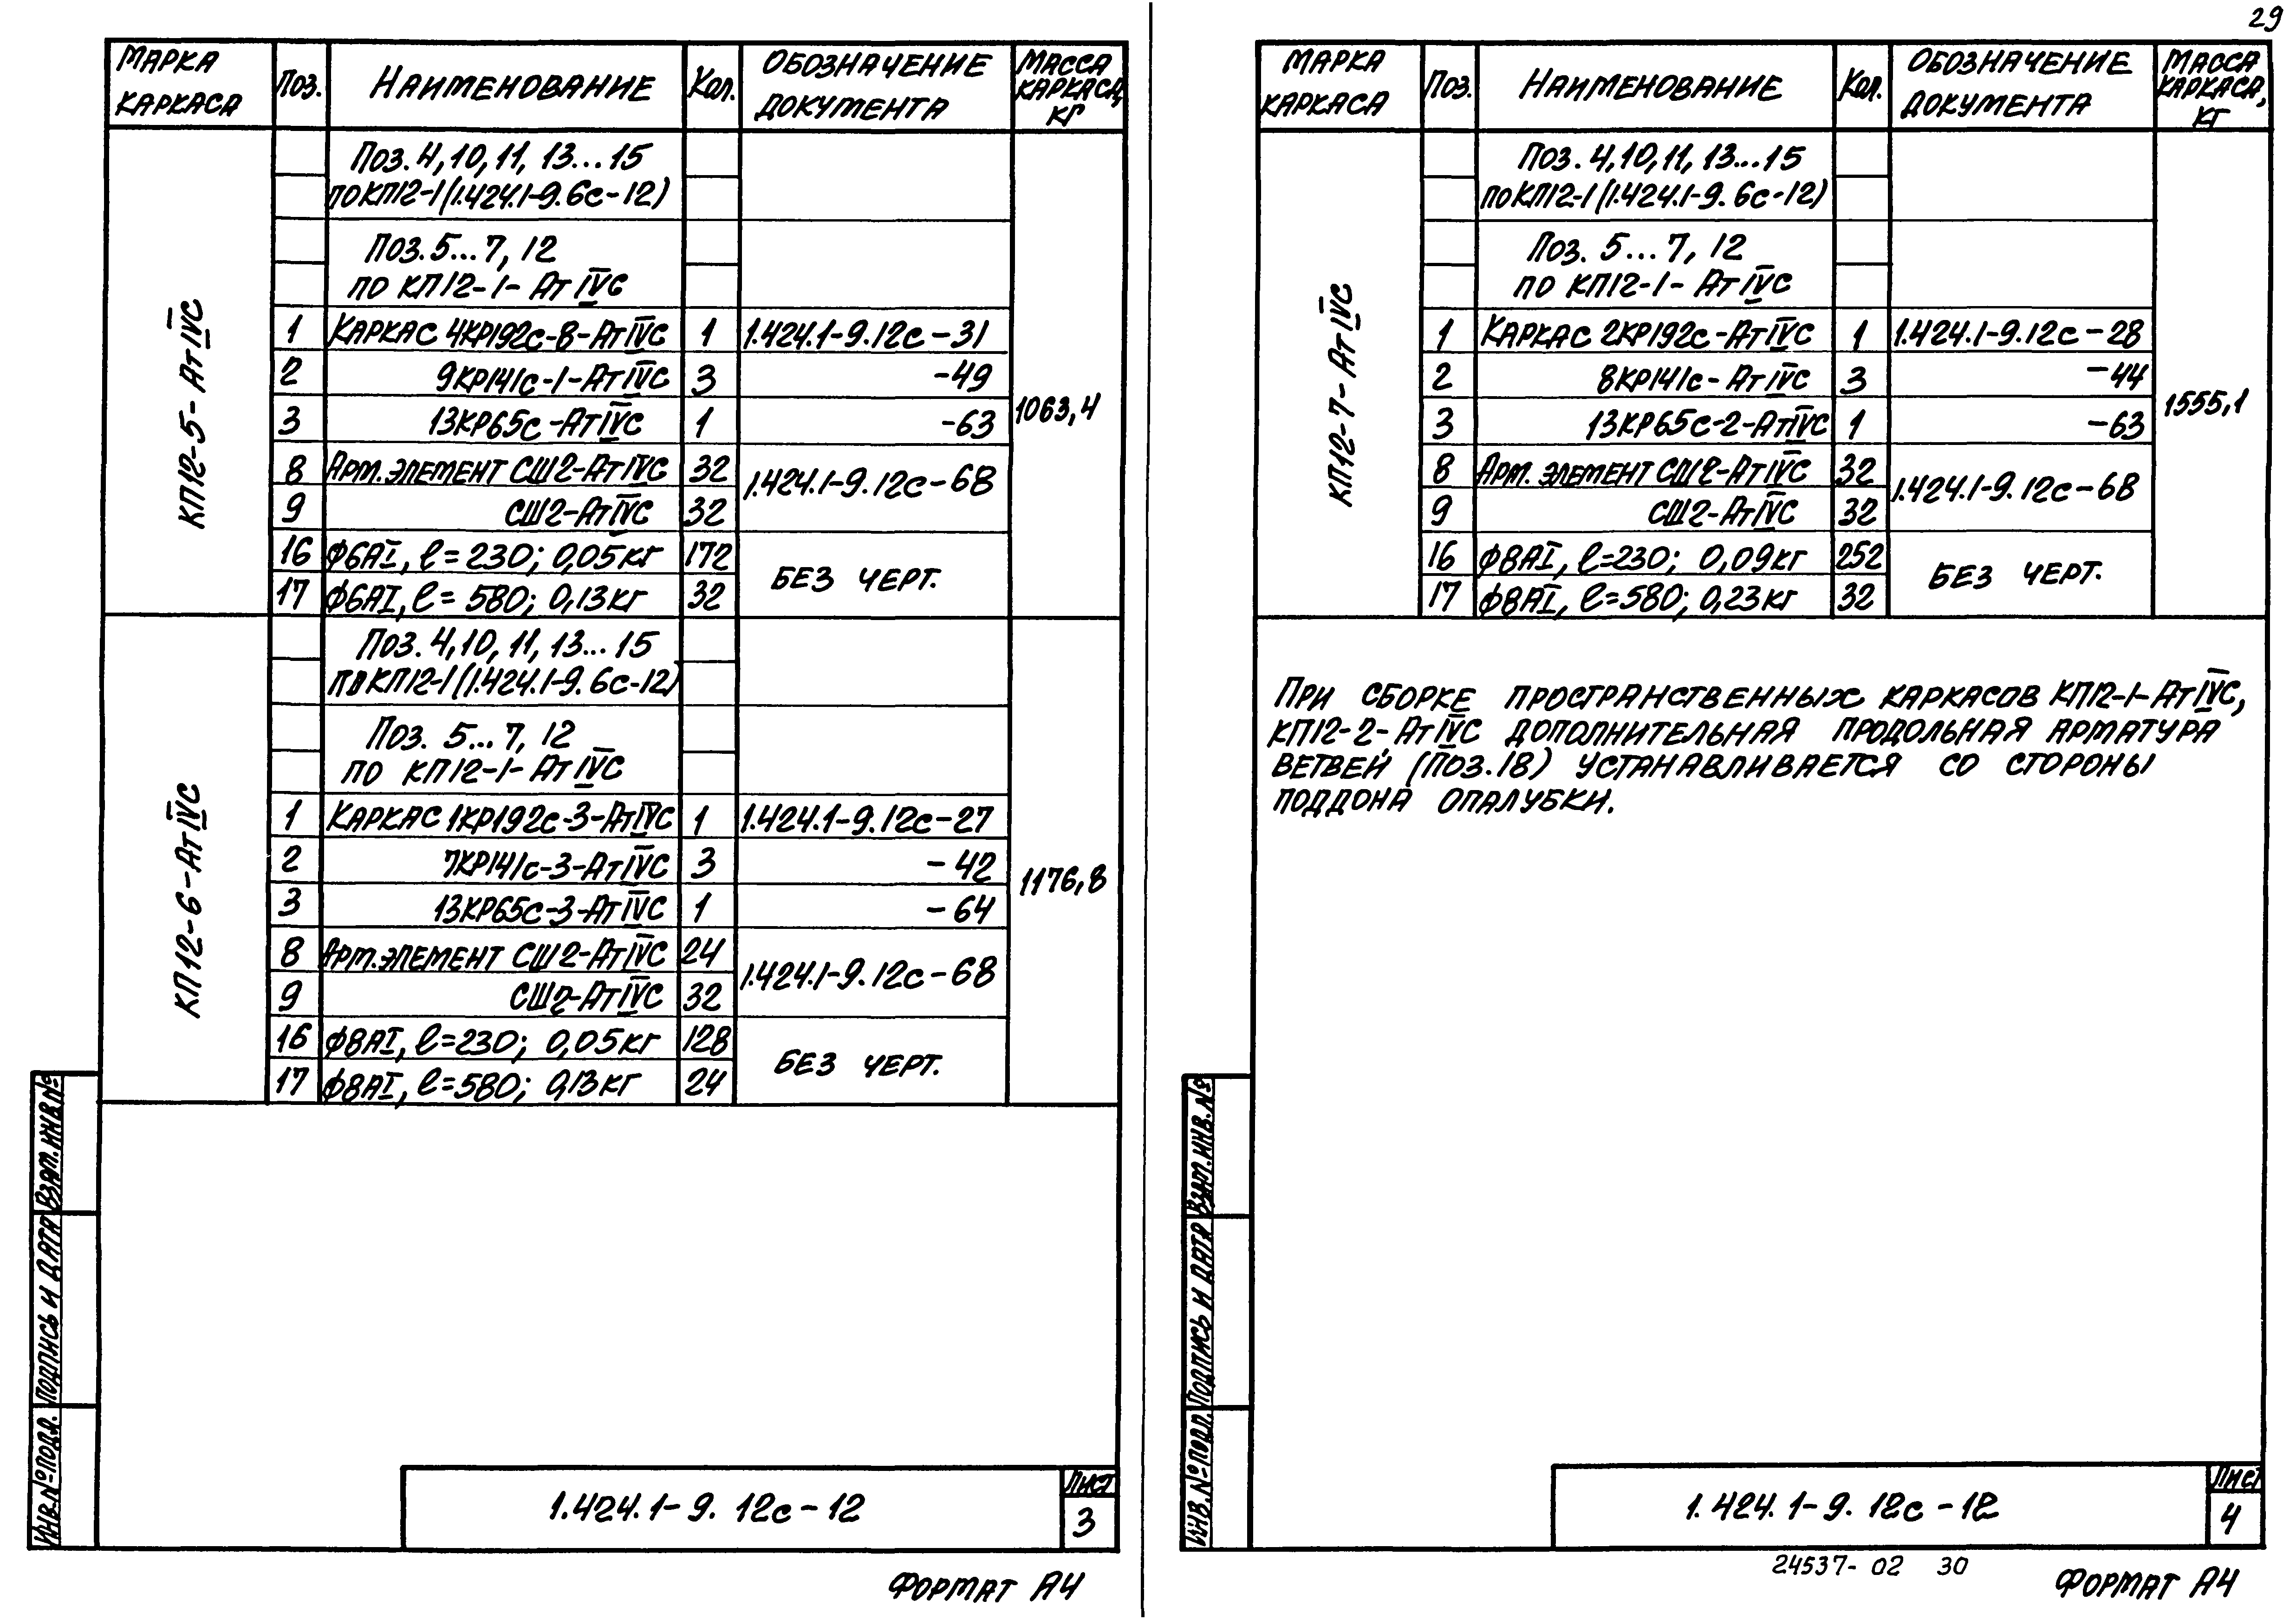 29
МАРКА КАРКАСА Поз. НАИМЕНОВАНИЕ Кол. ОБОЗНАЧЕНИЕ ДОКУМЕНТА МАССА КАРКАСА, КГ
КП12-5-АтIVС
Поз. 4, 10, 11, 13...15
ПО КП12-1 (1.424.1-9.6с-12)
Поз. 5...7, 12
ПО КП12-1-АтIVС
1 КАРКАС 4КР192с-8-АтIVС 1 1.424.1-9.12с-31
2 9КР141с-1-АтIVС 3 -49
3 13КР65с-АтIVС 1 -63
1063,4
8 АРМ. ЭЛЕМЕНТ СШ2-АтIVС 32 1.424.1-9.12с-68
9 СШ2-АтIVС 32
16 ϕ6АI, ℓ=230; 0,05кг 172 БЕЗ ЧЕРТ.
17 ϕ6АI, ℓ=580; 0,13кг 32
КП12-6-АтIVС
Поз. 4, 10, 11, 13...15
ПО КП12-1 (1.424.1-9.6с-12)
Поз. 5...7, 12
ПО КП12-1-АтIVС
1 КАРКАС 1КР192с-3-АтIVС 1 1.424.1-9.12с-27
2 7КР141с-3-АтIVС 3 -42
3 13КР65с-3-АтIVС 1 -64
1176,8
8 АРМ. ЭЛЕМЕНТ СШ2-АтIVС 24 1.424.1-9.12с-68
9 СШ2-АтIVС 32
16 ϕ8АI, ℓ=230; 0,05кг 128 БЕЗ ЧЕРТ.
17 ϕ8АI, ℓ=580; 0,13кг 24
ИНВ.№ПОДЛ. ПОДПИСЬ И ДАТА ВЗАМ.ИНВ.№
1.424.1-9. 12с-12
ЛИСТ
3
ФОРМАТ А4
МАРКА КАРКАСА Поз. НАИМЕНОВАНИЕ Кол. ОБОЗНАЧЕНИЕ ДОКУМЕНТА МАССА КАРКАСА, КГ
КП12-7-АтIVС
Поз. 4, 10, 11, 13...15
ПО КП12-1 (1.424.1-9.6с-12)
Поз. 5...7, 12
ПО КП12-1-АтIVС
1 КАРКАС 2КР192с-АтIVС 1 1.424.1-9.12с-28
2 8КР141с-АтIVС 3 -44
3 13КР65с-2-АтIVС 1 -63
1555,1
8 АРМ. ЭЛЕМЕНТ СШ2-АтIVС 32 1.424.1-9.12с-68
9 СШ2-АтIVС 32
16 ϕ8АI, ℓ=230; 0,09кг 252 БЕЗ ЧЕРТ.
17 ϕ8АI, ℓ=580; 0,23кг 32
ПРИ СБОРКЕ ПРОСТРАНСТВЕННЫХ КАРКАСОВ КП12-1-АтIVС,
КП12-2-АтIVС ДОПОЛНИТЕЛЬНАЯ ПРОДОЛЬНАЯ АРМАТУРА
ВЕТВЕЙ (ПОЗ.18) УСТАНАВЛИВАЕТСЯ СО СТОРОНЫ
ПОДДОНА ОПАЛУБКИ.
ИНВ.№ПОДЛ. ПОДПИСЬ И ДАТА ВЗАМ.ИНВ.№
1.424.1-9. 12с-12
ЛИСТ
4
24537-02 30
ФОРМАТ А4